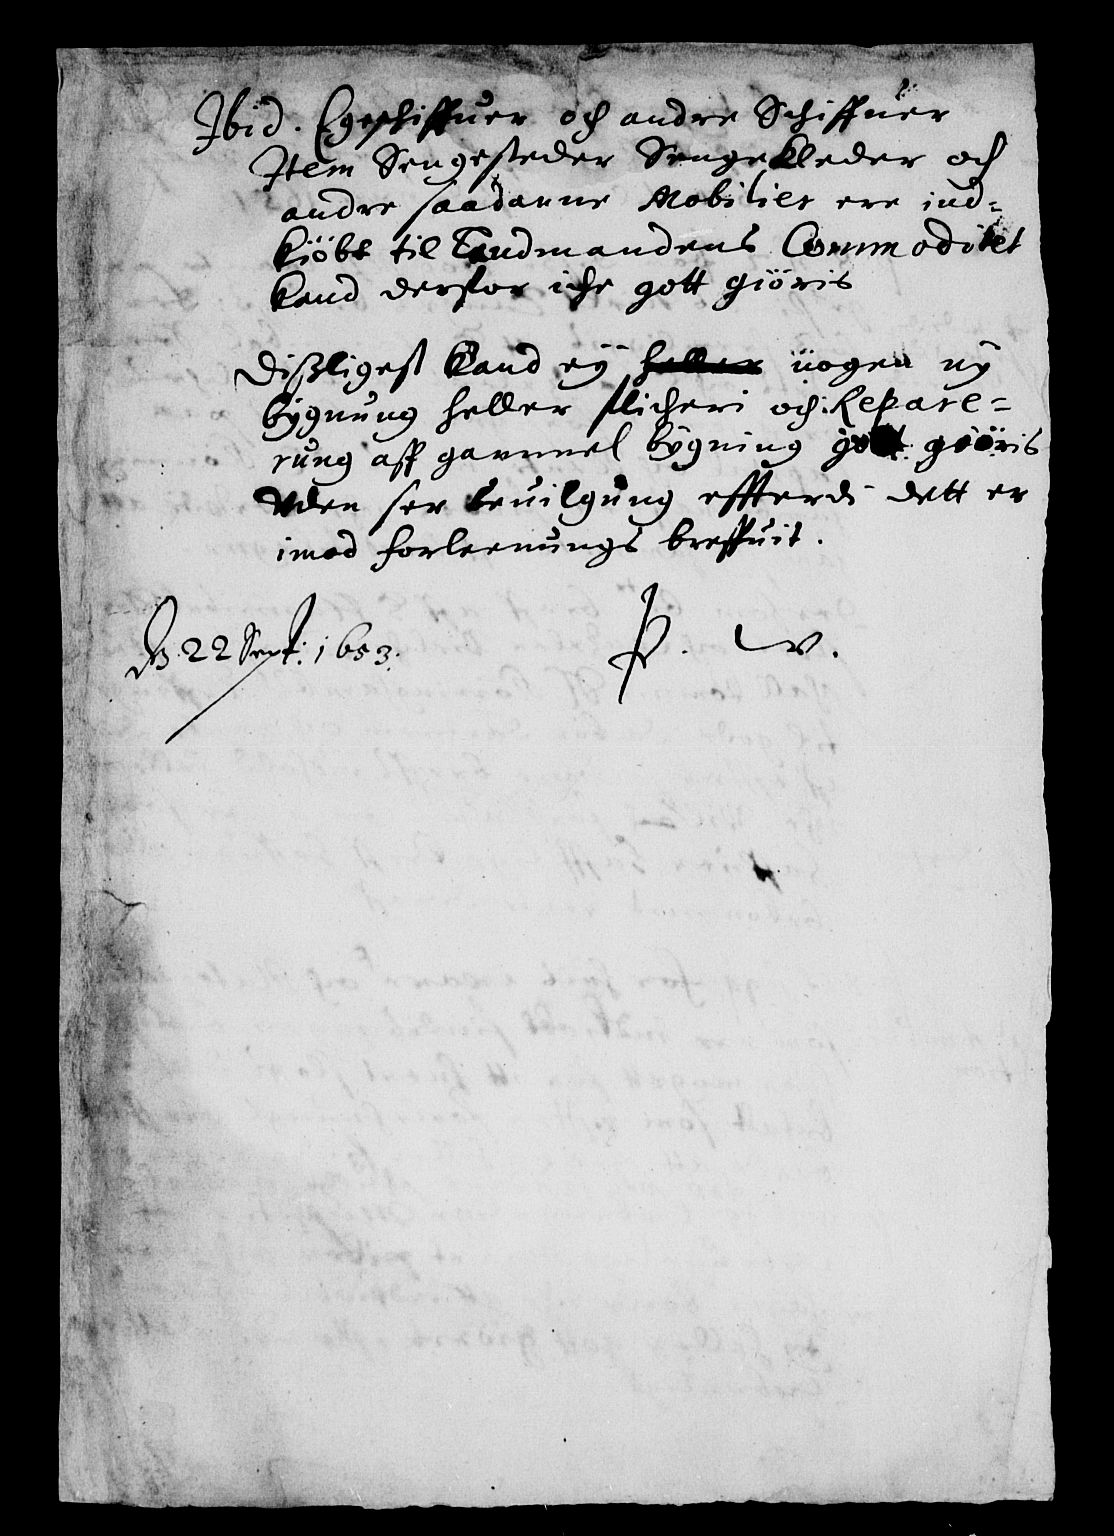 Ibid. Egeskiffuer och andre Schiffuer
Item Sengesteder Sengekleder och
andre saadanne Mobilier ere ind-
kiöbt til Landmandens Commoditet
kand derfor iche gott giöris
Dißligest kand eÿ heller nogen nÿ
bÿgnung heller flicheri och Repare-
rung aff gammel bÿgning gott giöris
Vden ser beuilgung effterdi dett er
imod forleenungs breffuit.
D. 22 Sept: 1653.
P. W.